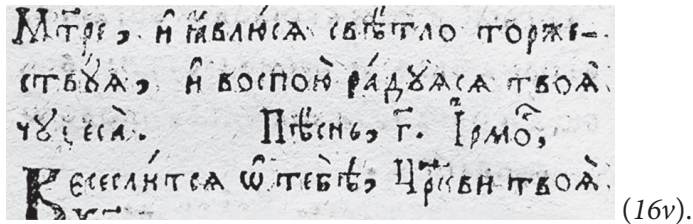 Мт҃ре, и҆ ꙗ҆влю́сѧ свѣ́тло торже-
ствꙋ́ѧ, и҆ воспою̀ ра́дꙋѧсѧ твоѧ̀
чꙋдеса̀. Пѣ́снь, г҃. І҆рмо́,
Веселѝтсѧ ѡ҆ тебѣ̀, Цр҃кви твоѧ̀.
(16v).